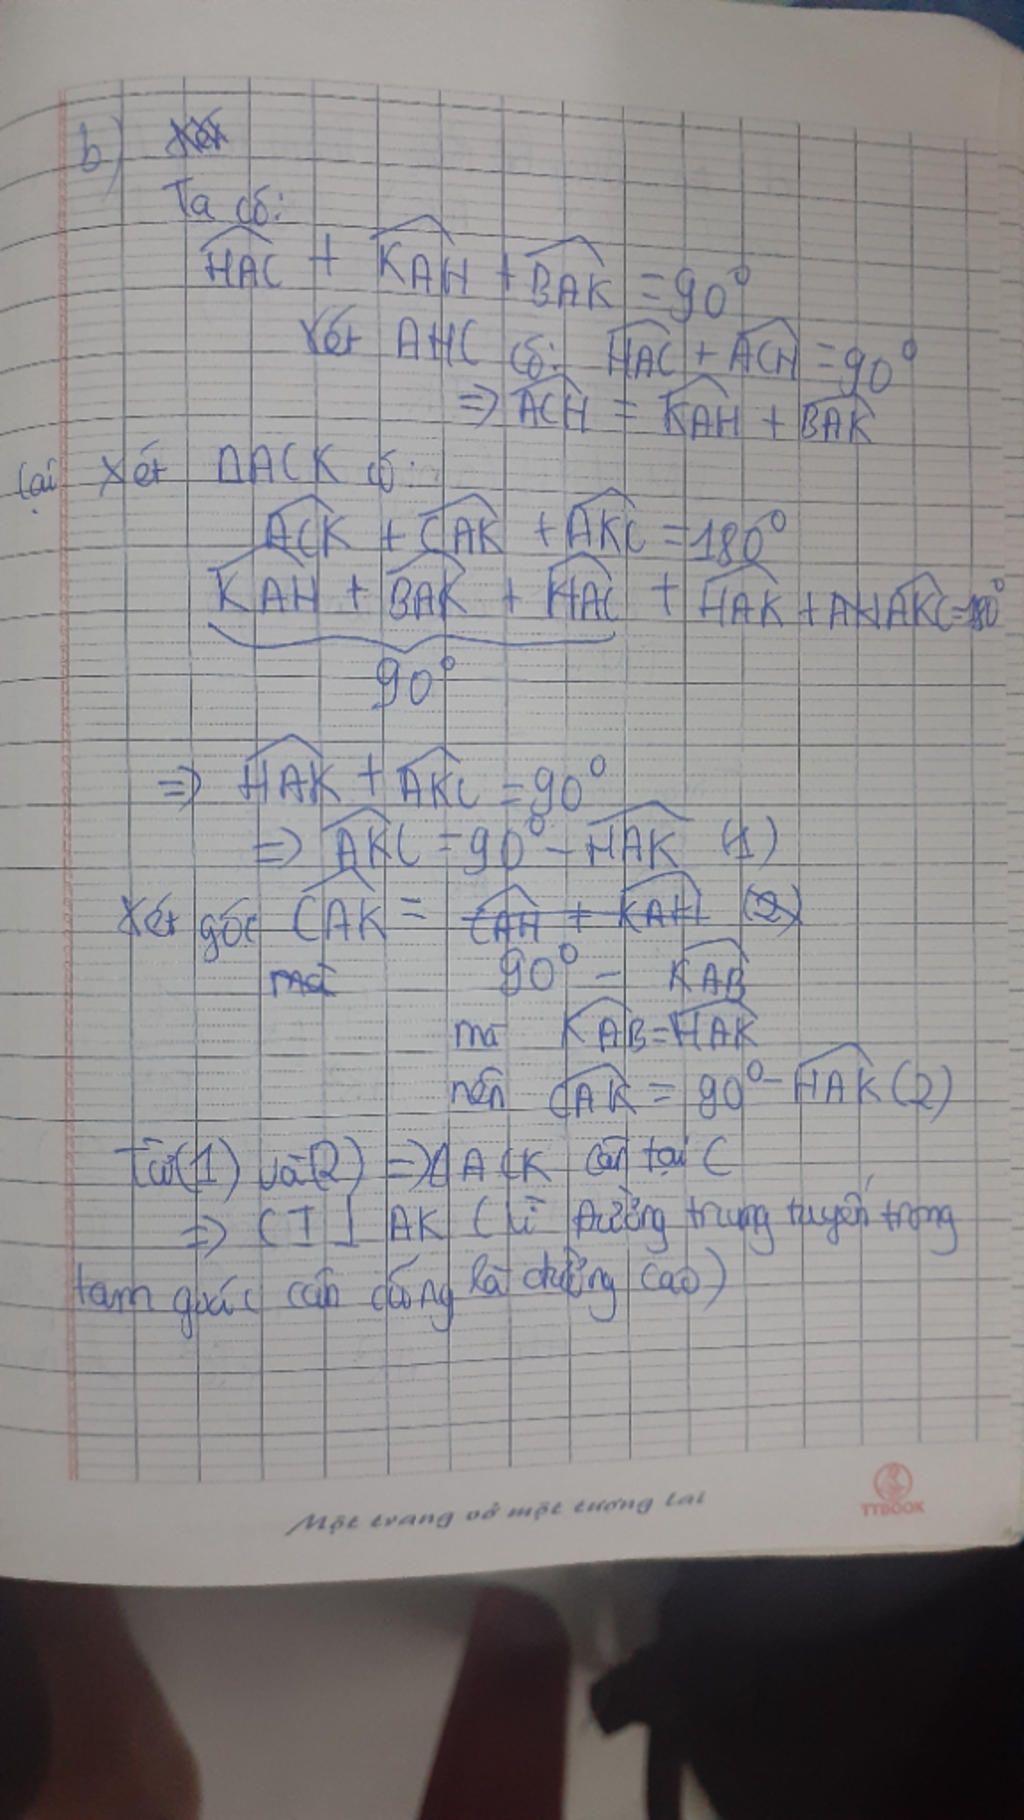 b)
Ta có:
HAC + KAH + BAK = 90°
Xét AHC có: HAC + ACH = 90°
=> ACH = KAH + BAK
lại Xét ΔACK có:
ACK + CAK + AKC = 180°
KAH + BAK + HAC + HAK + AKC = 180°
90°
=> HAK + AKC = 90°
=> AKC = 90° - HAK (1)
Xét góc CAK = CAH + KAH (2)
mà 90° - KAB
mà KAB = HAK
nên CAK = 90° - HAK (2)
Từ (1) và (2) => ΔACK cân tại C
=> CI ⊥ AK (vì đường trung tuyến trong
tam giác cân cũng là đường cao)
Một trang vở một tương lai
TTBOOK